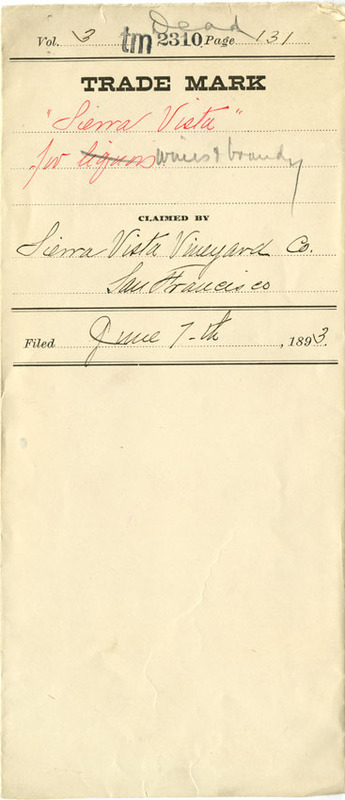 Dead
Vol. 3 tm 2310 Page 131
TRADE MARK
"Sierra Vista"
for liquors wines & brandy
CLAIMED BY
Sierra Vista Vineyard Co.
San Francisco
Filed June 7th, 1893.